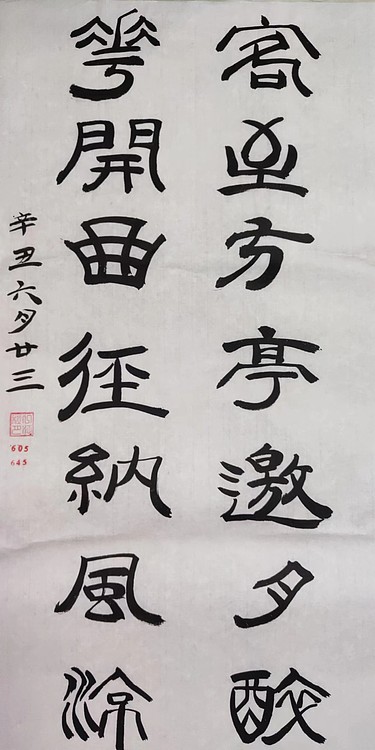 客至方亭邀月醉
華開曲徑納風涼
辛丑六月廿三
605
645